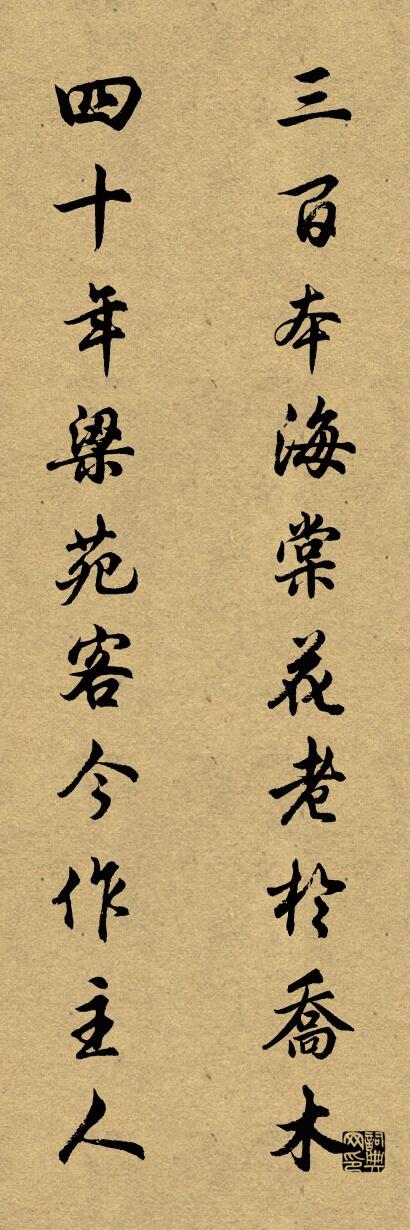 三百本海棠花老於喬木
四十年梁苑客今作主人
詞典网印